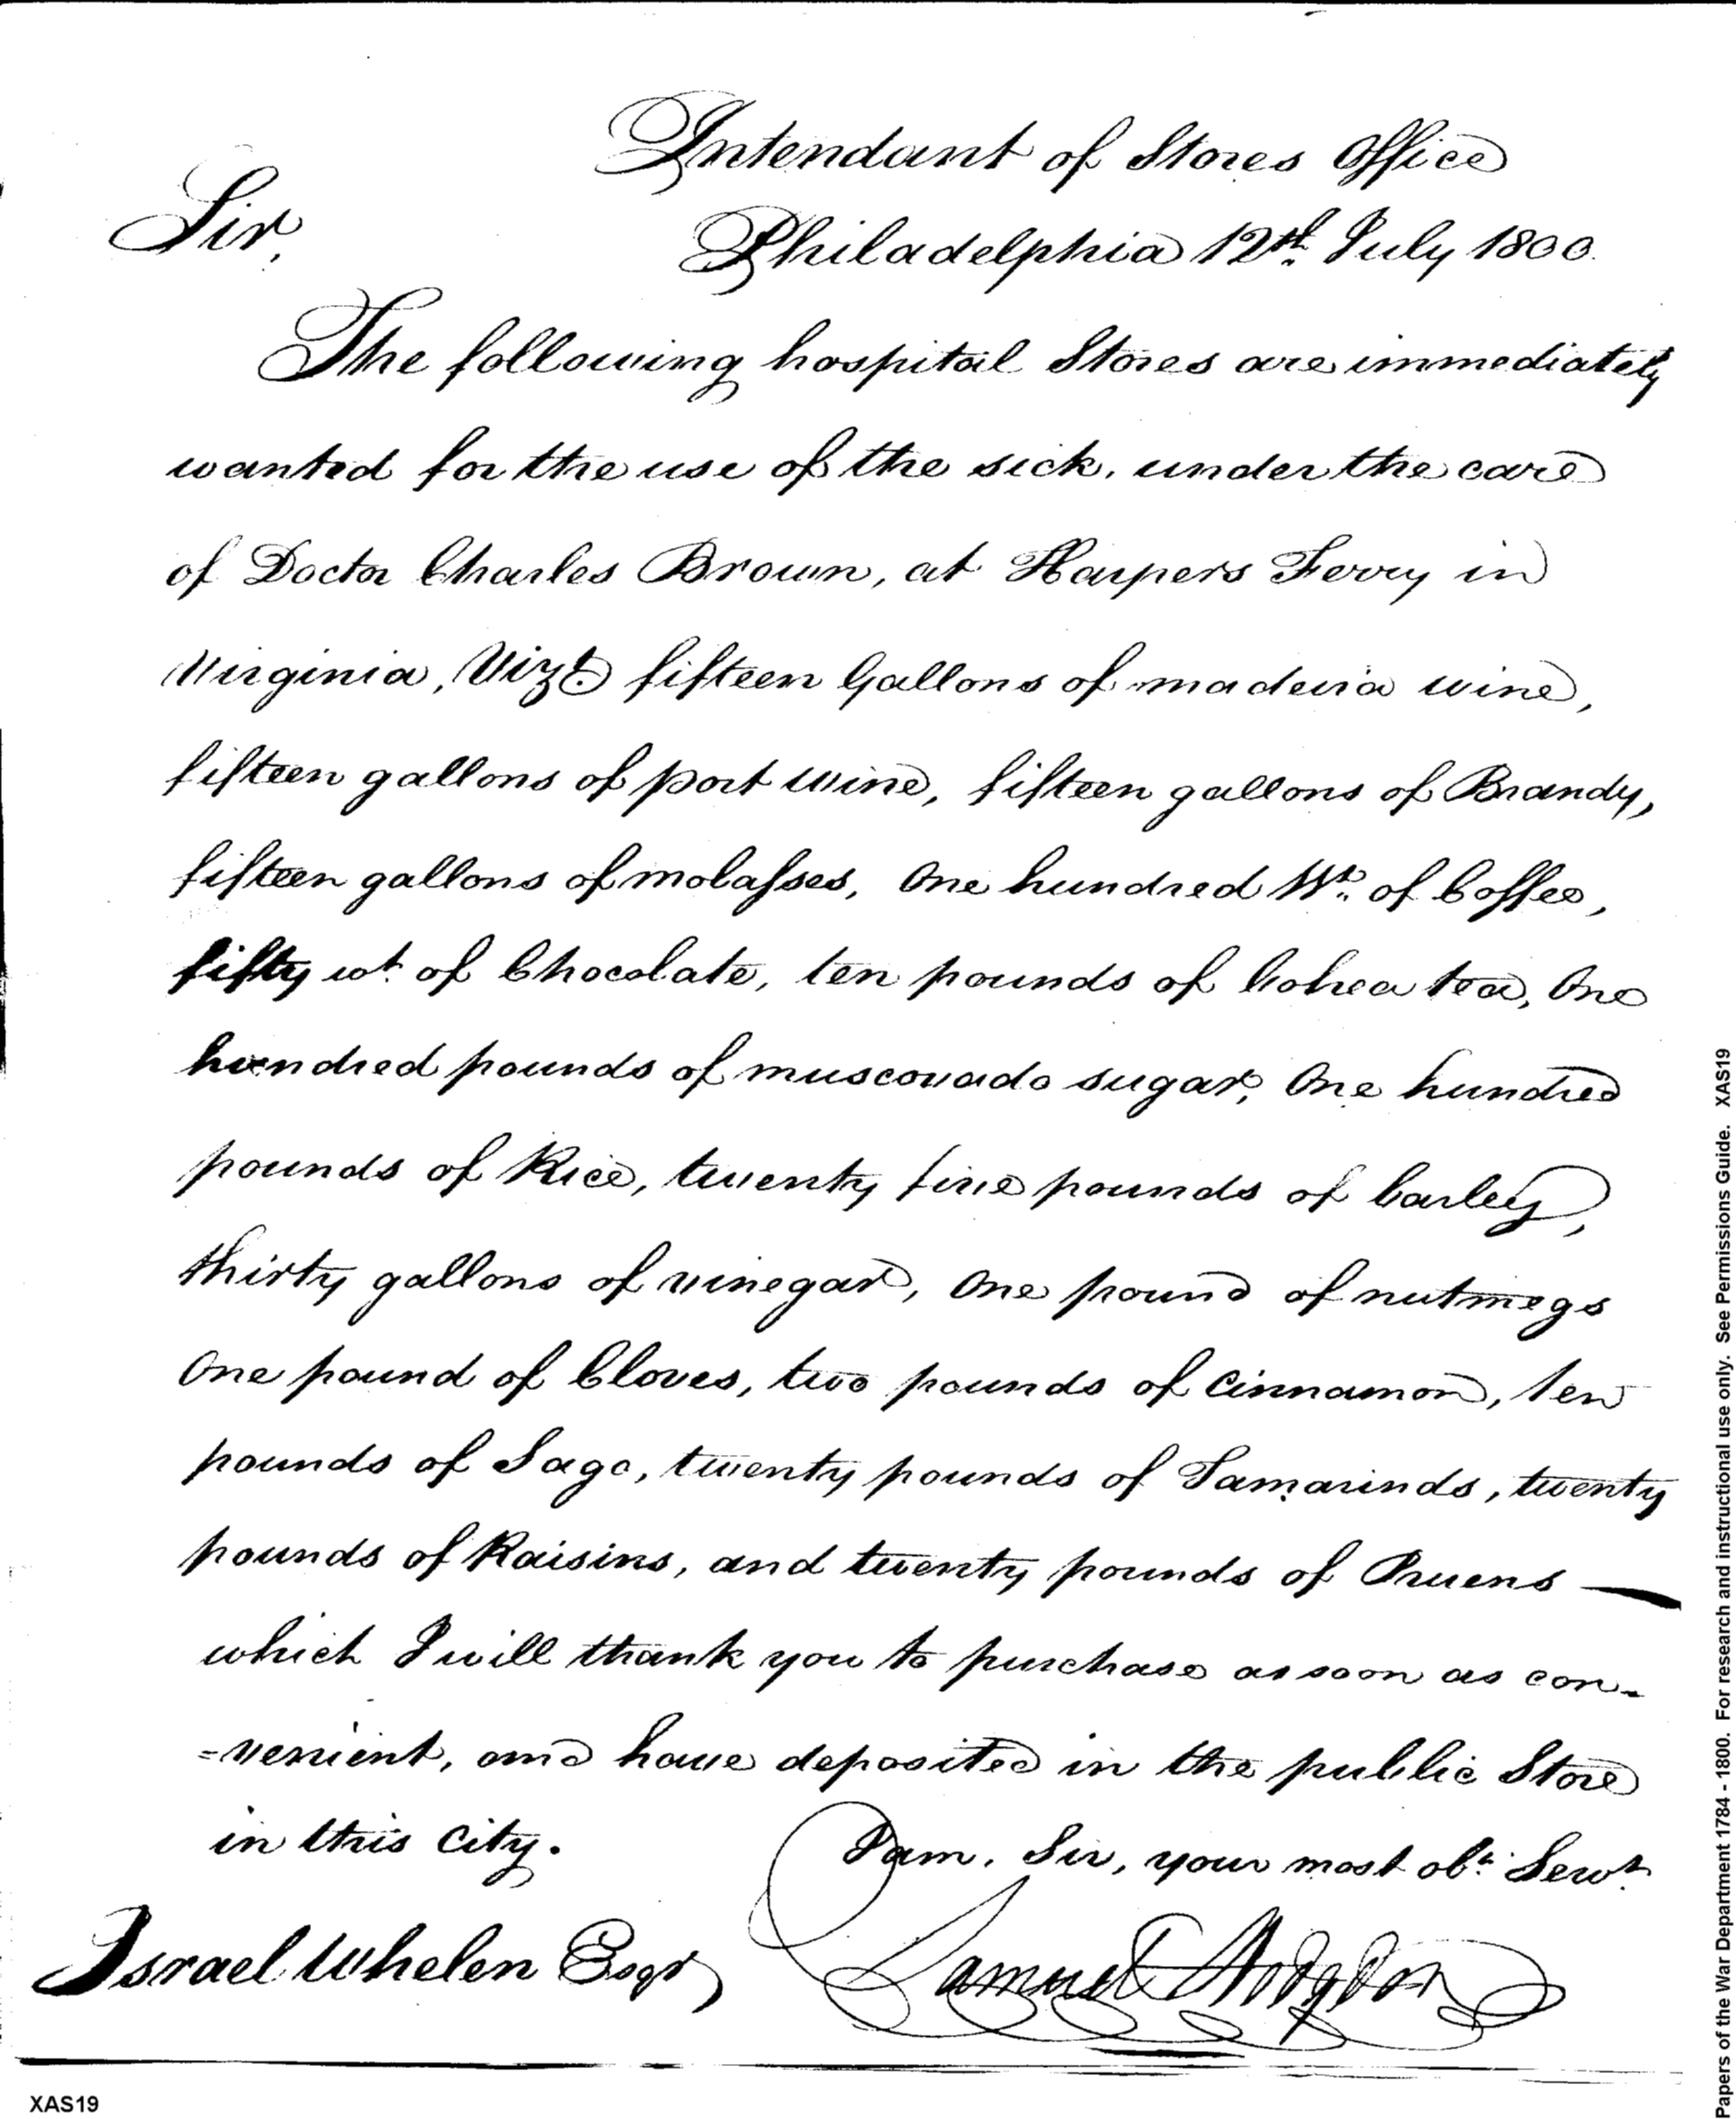 Intendant of Stores Office
Sir,
Philadelphia 12th July 1800.
The following hospital Stores are immediately
wanted for the use of the sick, under the care
of Doctor Charles Brown, at Harpers Ferry in
Virginia, Vizt. fifteen Gallons of madeira wine,
fifteen gallons of port wine, fifteen gallons of Brandy,
fifteen gallons of molasses, One hundred Wt. of Coffee,
fifty wt. of Chocolate, ten pounds of bohea tea, One
hundred pounds of muscovado sugar, One hundred
pounds of Rice, twenty five pounds of barley,
thirty gallons of vinegar, One pound of nutmegs
One pound of Cloves, two pounds of Cinnamon, ten
pounds of Sago, twenty pounds of Tamarinds, twenty
pounds of Raisins, and twenty pounds of Pruens —
which I will thank you to purchase as soon as con-
=venient, and have deposited in the public Store
in this City.
I am, Sir, your most obt. Servt.
Israel Whelen Esqr
Samuel Hodgdon
XAS19
Papers of the War Department 1784 - 1800. For research and instructional use only. See Permissions Guide. XAS19